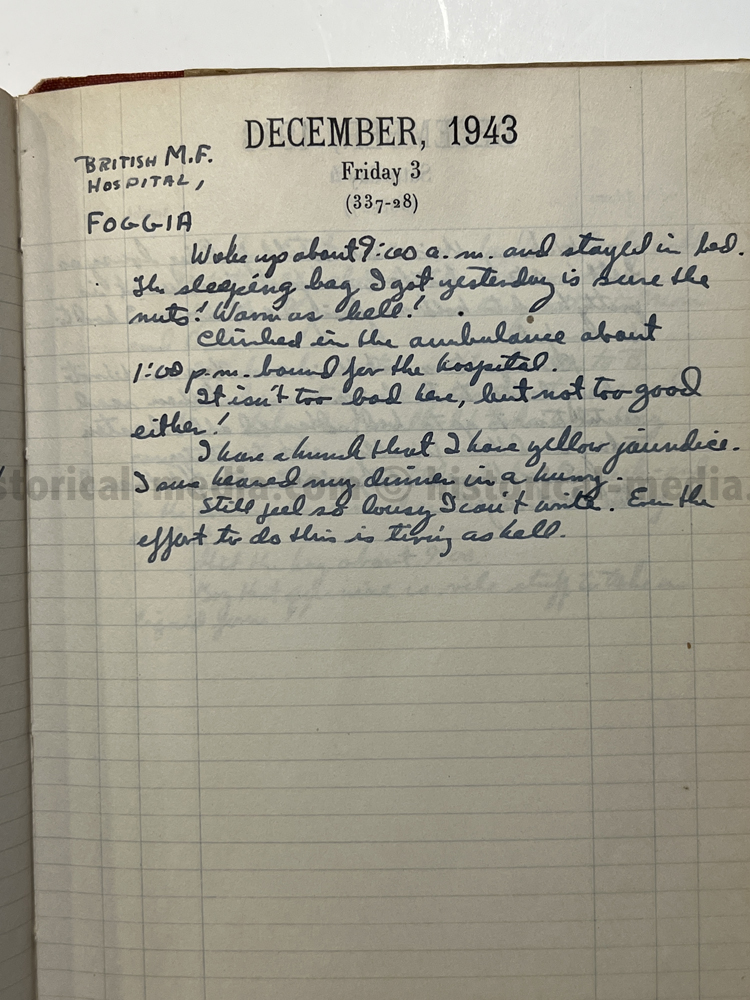 DECEMBER, 1943
Friday 3
(337-28)
BRITISH M.F.
HOSPITAL,
FOGGIA
Woke up about 9:00 a.m. and stayed in bed.
The sleeping bag I got yesterday is sure the
nuts! Warm as hell!
Climbed in the ambulance about
1:00 p.m. bound for the hospital.
It isn't too bad here, but not too good
either!
I have a hunch that I have yellow jaundice.
I sure heaved my dinner in a hurry.
Still feel so lousy I can't write. Even the
effort to do this is tiring as hell.
storical-media.com © historical-media.